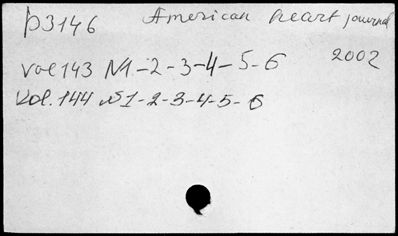 p3146 American heart journal
2002
vol 143 N1-2-3-4-5-6
Vol. 144 N1-2-3-4-5-6